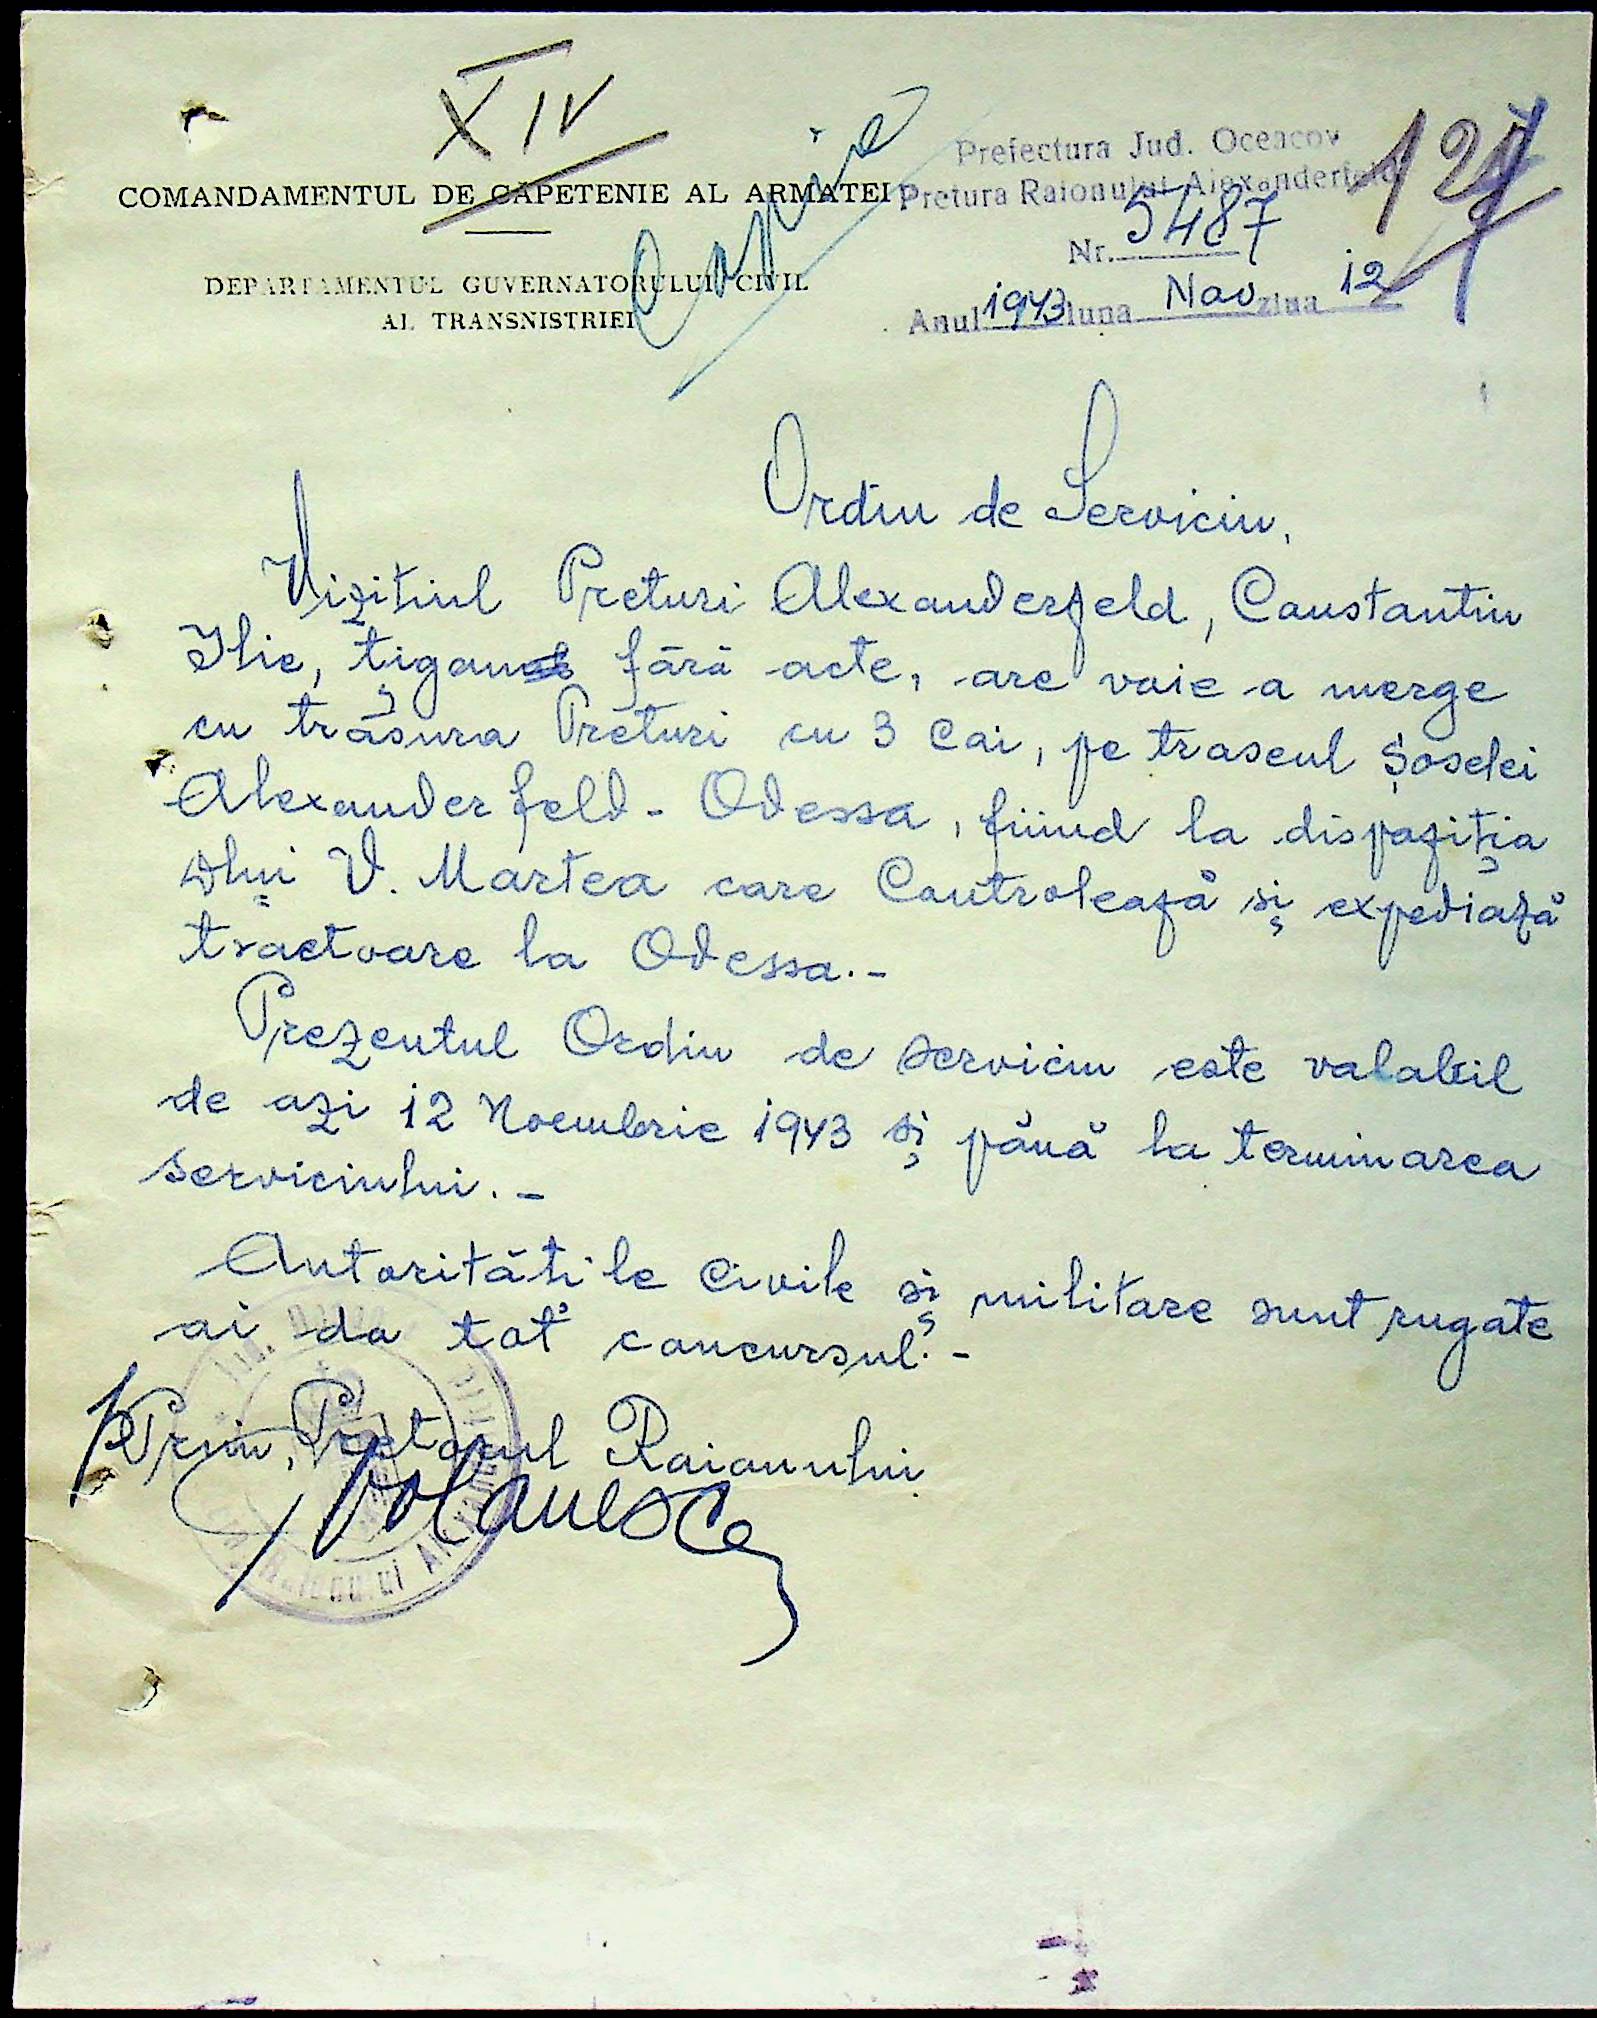 XIV
COMANDAMENTUL DE CAPETENIE AL ARMATEI
DEPARTAMENTUL GUVERNATORULUI CIVIL
AL TRANSNISTRIEI
Copie
Prefectura Jud. Oceacov
Pretura Raionului Alexanderfeld
Nr. 5487
Anul 1943 luna Nov ziua 12
127
Ordin de Serviciu,
Vizitiul Preturi Alexanderfeld, Constantin
Ilie, țigan fără acte, are voie a merge
cu trăsura Preturi cu 3 Cai, pe traseul Șoselei
Alexanderfeld - Odessa, fiind la dispoziția
Dlui V. Martea care Controlează și expediază
tractoare la Odessa.-
Prezentul Ordin de serviciu este valabil
de azi 12 Noembrie 1943 și până la terminarea
serviciului.-
Autoritățile Civile și militare sunt rugate
ai da tot concursul.-
Prim, Pretorul Raionului